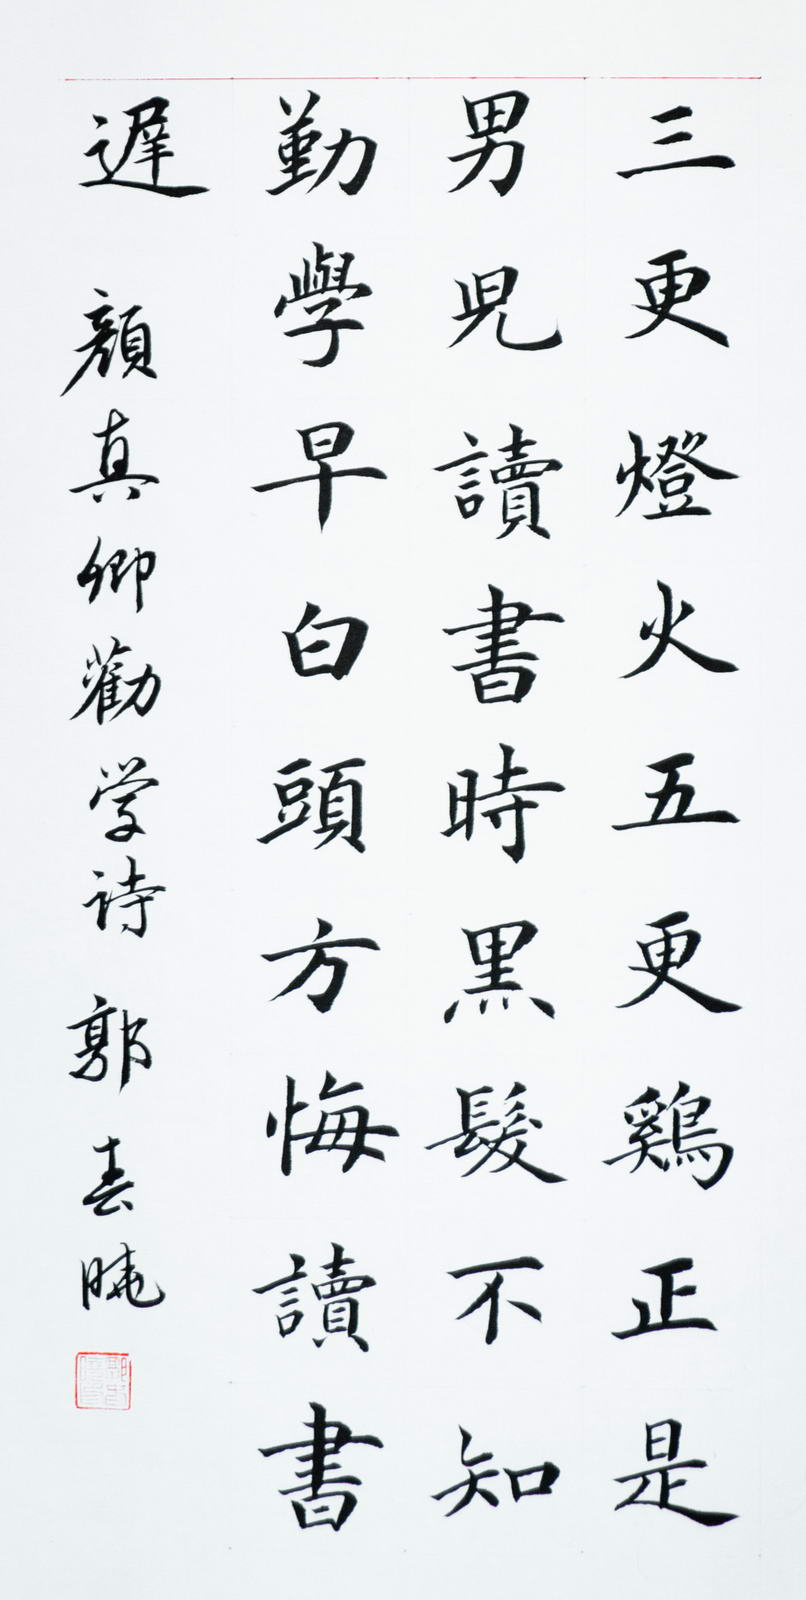 三更燈火五更鷄正是
男兒讀書時黑髮不知
勤學早白頭方悔讀書
遲
顏真卿勸学诗 郭春曉